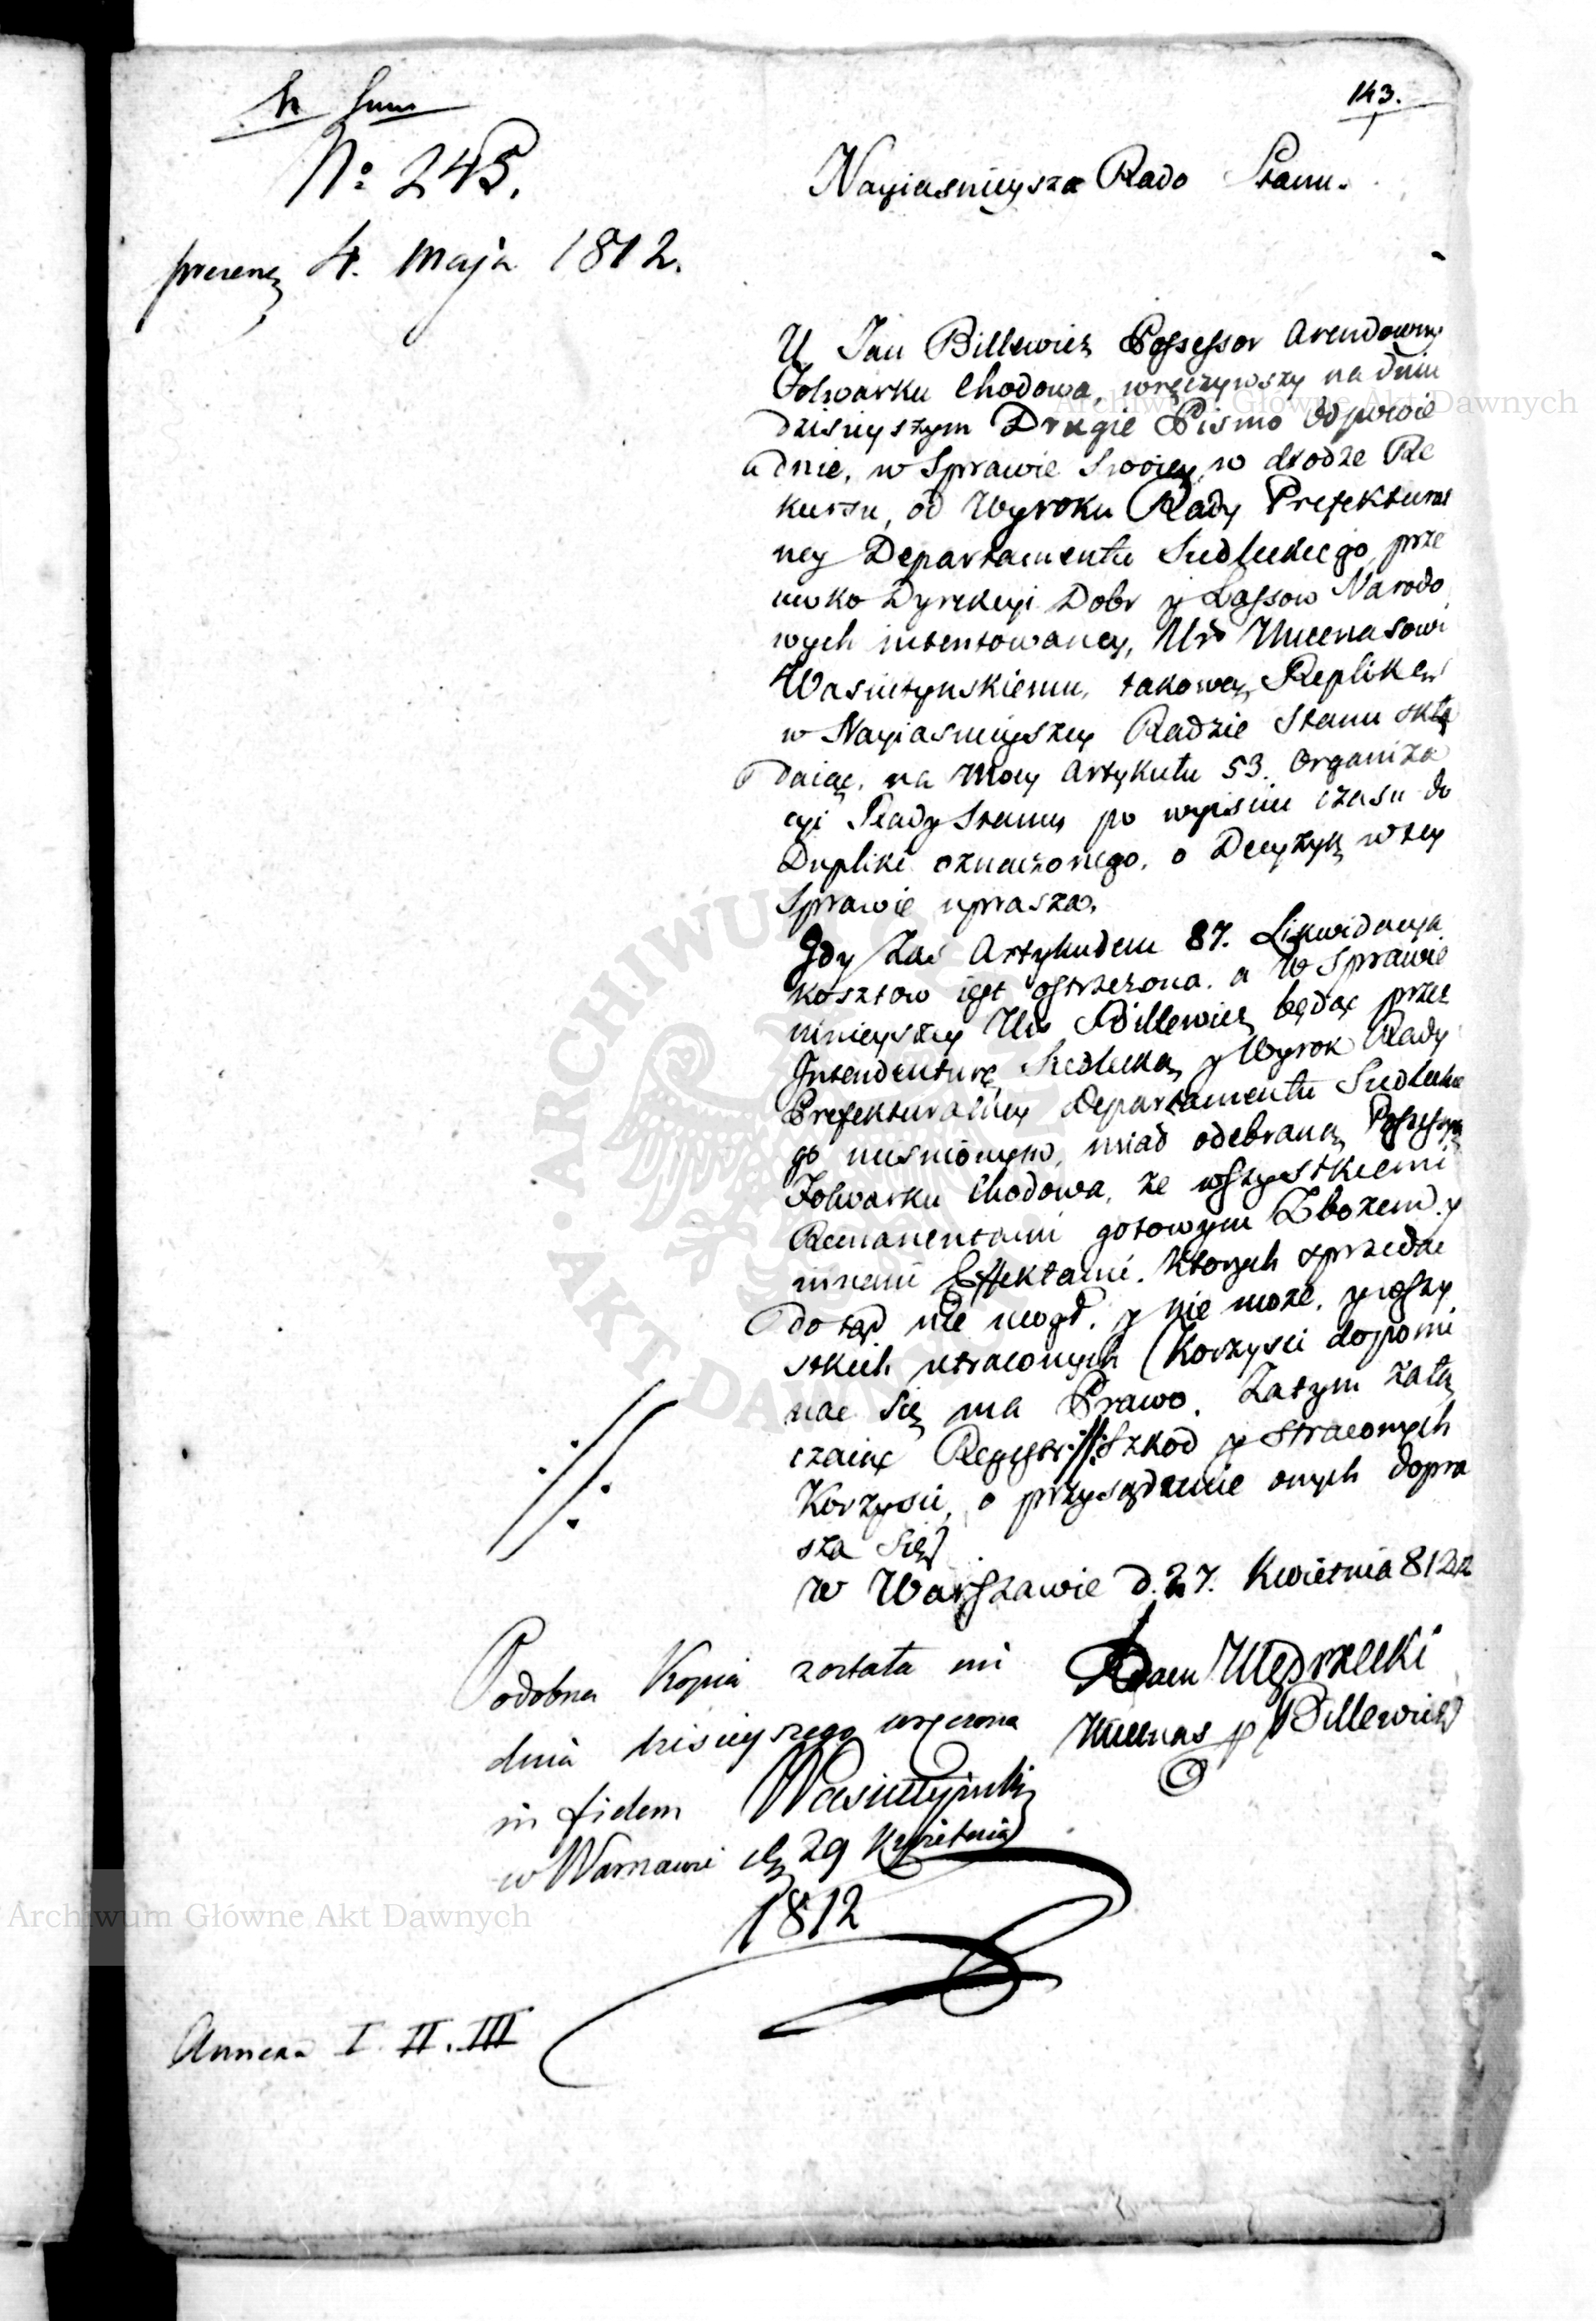 143.
No 245.
4. Maja 1812.
Nayiasnieysza Rado Stanu.
U. Jan Billewicz Possessor Arendowny
Folwarku Chodowa, wręczywszy na dniu
dzisieyszym Drugie Pismo Odpowie
dnie, w Sprawie Swoiey, w drodze Re
kursu, od Wyroku Rady Prefektural
ney Departamentu Siedleckiego, prze
ciwko Dyrekcyi Dobr y Lassow Narodo
wych intentowaney, Ur Mecenasowi
Wasiutynskiemu, takową Replikę
w Nayiasnieyszey Radzie Stanu skła
daiąc, na Mocy Artykułu 53. Organiza
cyi Rady Stanu, po wyisciu czasu do
Dupliki oznaczonego, o Decyzyą w tey
Sprawie uprasza.
Gdy zas Artykułem 87. Likwidacya
kosztow iest ostrzezona, a w Sprawie
ninieyszey Ur Billewicz będąc przez
Intendenturę Siedlecką y Wyrok Rady
Prefekturalney Departamentu Siedleckie
go uciśnionym, miał odebraną Possessyą
Folwarku Chodowa, ze wszystkiemi
Remanentami gotowym Zbozem y
innemi Effektami, Ktorych sprzedac
dotąd nie mogł, y nie moze, y wszy
stkich utraconych Korzysci dopomi
nac się ma Prawo. Zatym załą
czaiąc Regestr //. Szkod y straconych
Korzysci, o przysądzenie onych dopra
sza się
w Warszawie d. 27. Kwietnia 812 r
Adam Mędrzecki
Mecenas p Billewicza
//.
Podobna Kopia została mi
dnia dzisieyszego wręczona
in fidem Wasiutyński
w Warszawie d. 29 Kwietnia
1812
Annexa I. II. III
Archiwum Główne Akt Dawnych
Archiwum Główne Akt Dawnych
ARCHIWUM GŁÓWNE AKT DAWNYCH